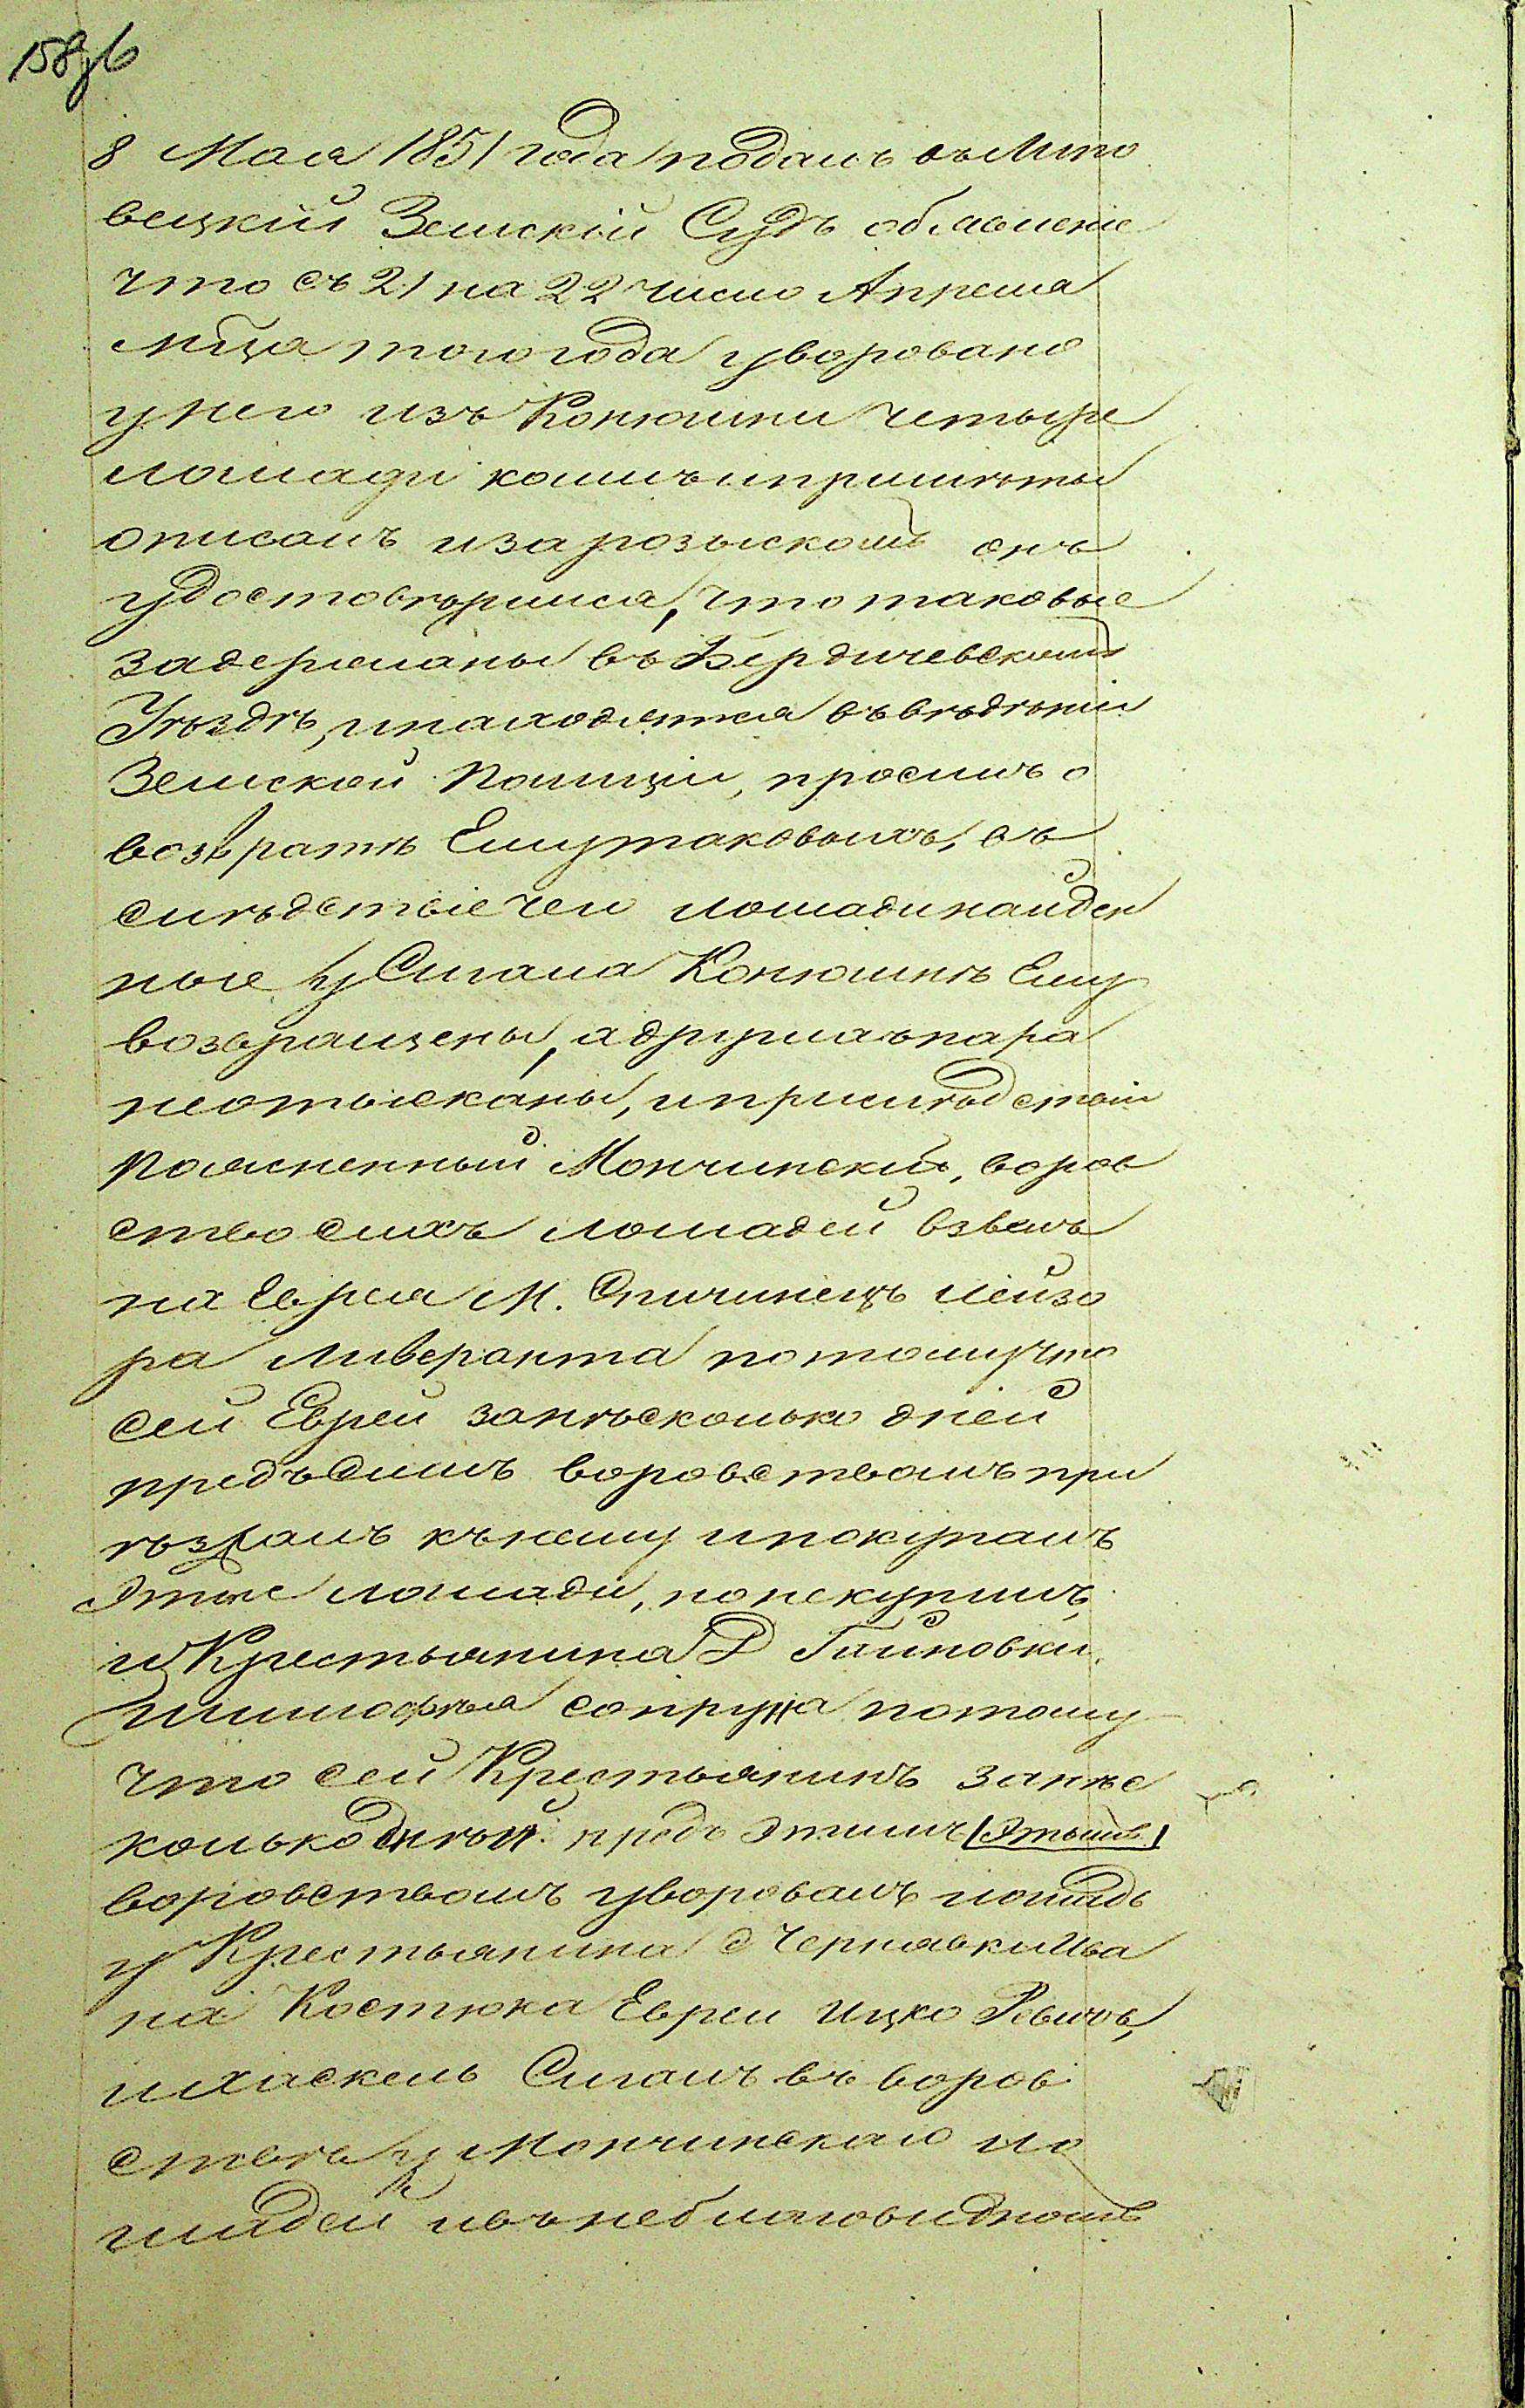 158 зв
8 Мая 1851 года подалъ въ Лито
вецкій Земскій Судъ объявленіе
что съ 21 на 22 число Апреля
мца того года уворовано
у него изъ Конюшни четыре
лошади коимъ и приметы
описалъ и за розыскомъ онъ
удостоверился, что таковые
задержаны въ Бердичевскомъ
Уѣздѣ, и находятся въ вѣдѣніи
Земской Полиціи, просилъ о
возвратѣ Ему таковыхъ, въ
слѣдствіе чего лошади найден
ные у Сигала Конюшнѣ Ему
возвращены, а другая пара
неотысканы, и при слѣдствіи
поясненный Мончинскій, воров
ство сихъ лошадей взвелъ
на Еврея М. Спичинецъ Лейзо
ра Ливеранта потому что
сей Еврей за нѣсколько дней
предъ Симъ воровствомъ при
ѣзжалъ къ нему и покупалъ
Этые лошади, но не купилъ,
и Крестьянина Д Гайновки
Тимофея сопруна потому
что сей Крестьянинъ за нѣс
колько дней предъ Этимъ (Этымъ)
воровствомъ уворовалъ лошадь
у Крестьянина с Чернявки Ива
на Костюка Евреи Ицко Ревичъ,
и Хаскель Сигалъ въ воров
ствѣ у Мончинскаго ло
шадей и въ неблаговидномъ